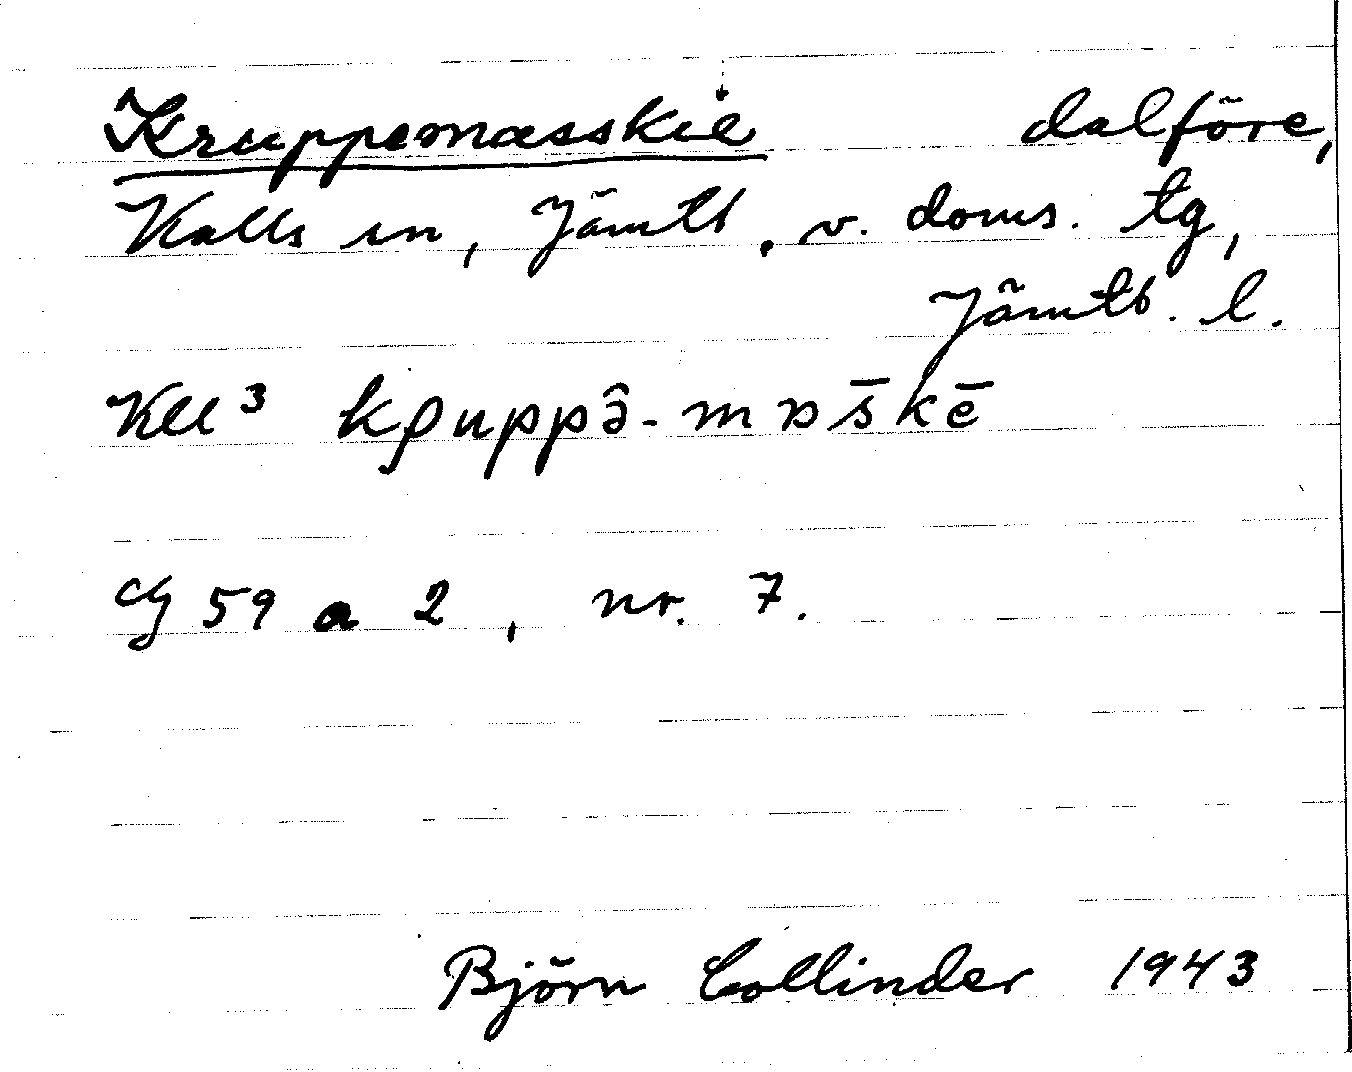 Kruppemasskie dalföre,
Kalls sn, Jämtl. v. doms. tg,
Jämtl. l.
Kll³
59 a 2, nr. 7.
Björn Collinder 1943